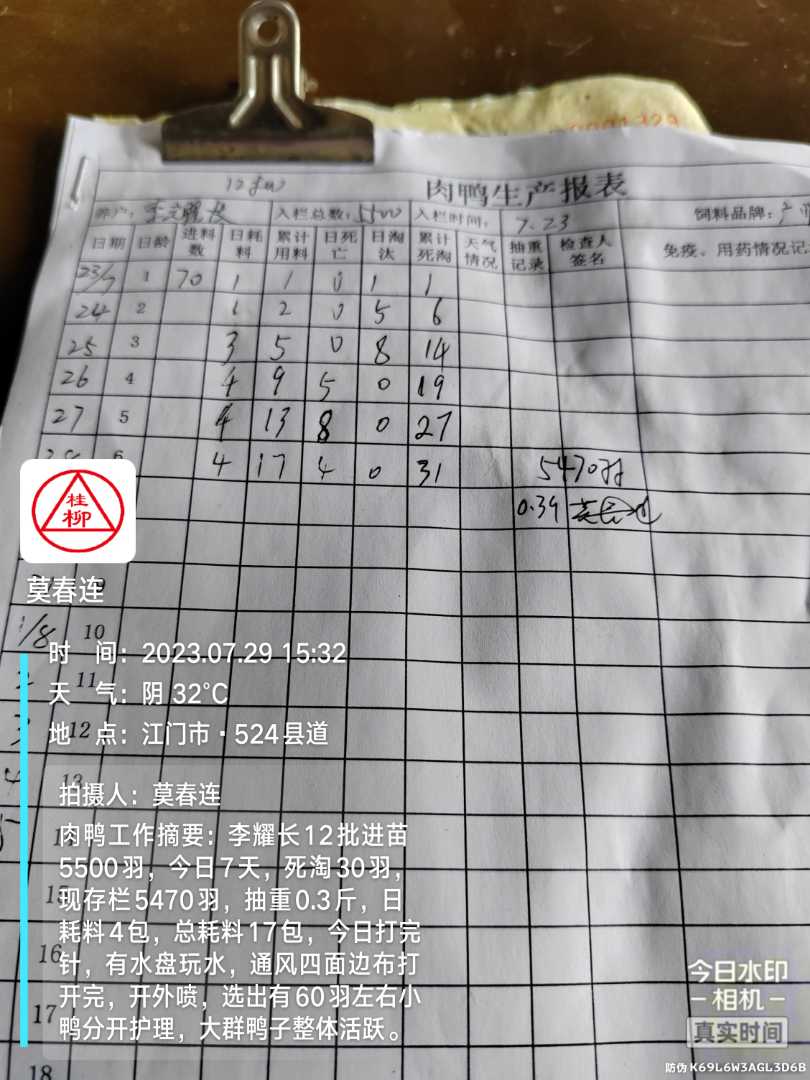 肉鸭生产报表
养户: 李耀长 入栏总数: 5500 入栏时间: 7.23 饲料品牌:
日期 日龄 进料数 日耗料 累计用料 日死亡 日淘汰 累计死淘 天气情况 抽重记录 检查人签名 免疫、用药情况记
23/7 1 70 1 1 0 1 1
24 2 1 2 0 5 6
25 3 3 5 0 8 14
26 4 4 9 5 0 19
27 5 4 13 8 0 27
6 4 17 4 0 31 5470羽
桂柳
莫春连
1/8 10
2 11
3 12
4 13
15
16
17
18
时 间: 2023.07.29 15:32
天 气: 阴 32°C
地 点: 江门市·524县道
拍摄人: 莫春连
肉鸭工作摘要: 李耀长12批进苗
5500羽，今日7天，死淘30羽，
现存栏5470羽，抽重0.3斤，日
耗料4包，总耗料17包，今日打完
针，有水盘玩水，通风四面边布打
开完，开外喷，选出有60羽左右小
鸭分开护理，大群鸭子整体活跃。
今日水印
相机
真实时间
防伪 K69L6W3AGL3D6B